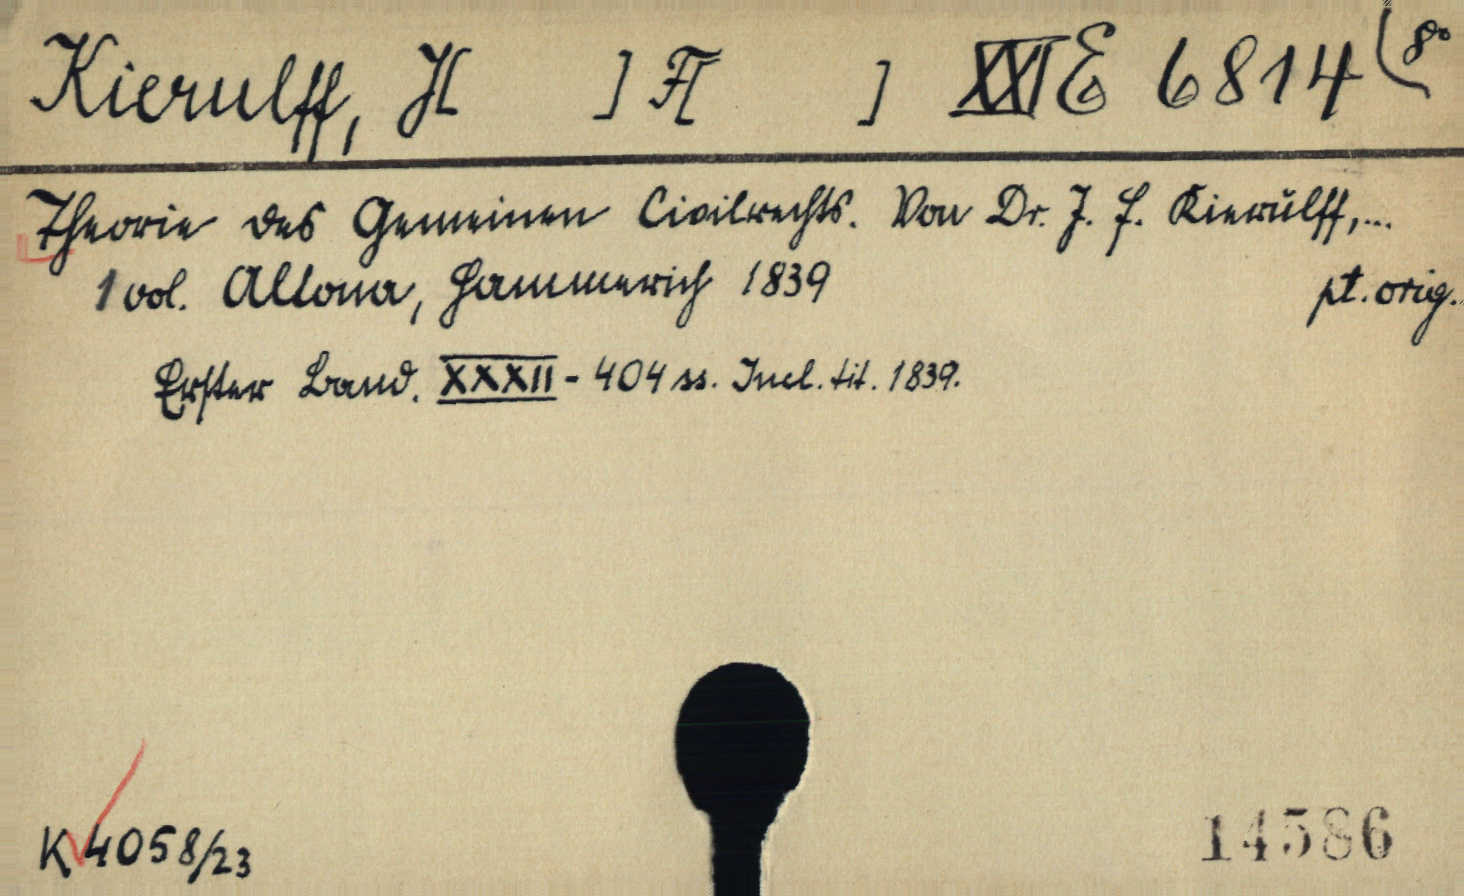 Kierulff, J[ ] F[ ] XXI E 6814 (8°
Theorie des Gemeinen Civilrechts. Von Dr. J. F. Kierulff,...
1 vol. Altona, Hammerich 1839 pt. orig.
Erster Band. XXXII - 404 ss. Incl. tit. 1839.
K 4058/23
14586